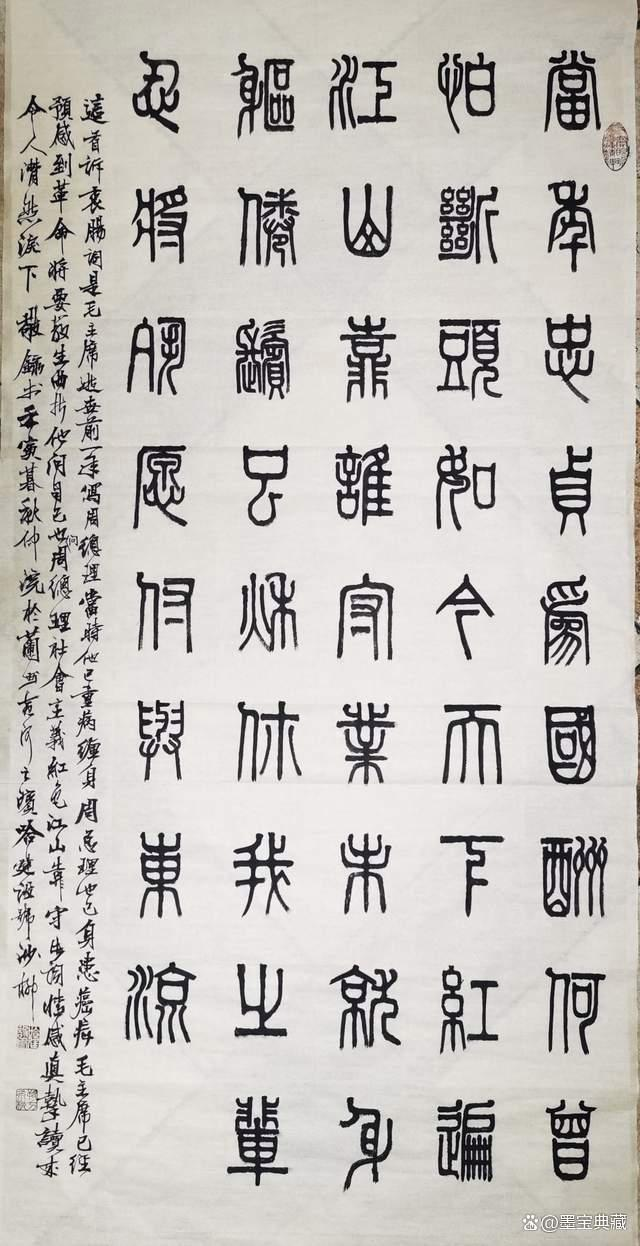 當年忠貞爲國酬何曾
怕斷頭如今天下紅遍
江山靠誰守業未就身
軀倦鬢已秋你我之輩
忍將夙愿付與東流
這首訴衷腸詞是毛主席逝世前一年寫周總理當時他已重病纏身周總理也已身患癌病毛主席已經
預感到革命將要發生曲折他問自己也問周總理社會主義紅色江山靠守詞情感真摯讀來
令人潸然淚下敬錄壬寅暮秋仲浣於蘭州黃河之濱哈建設號沙柳
墨宝典藏